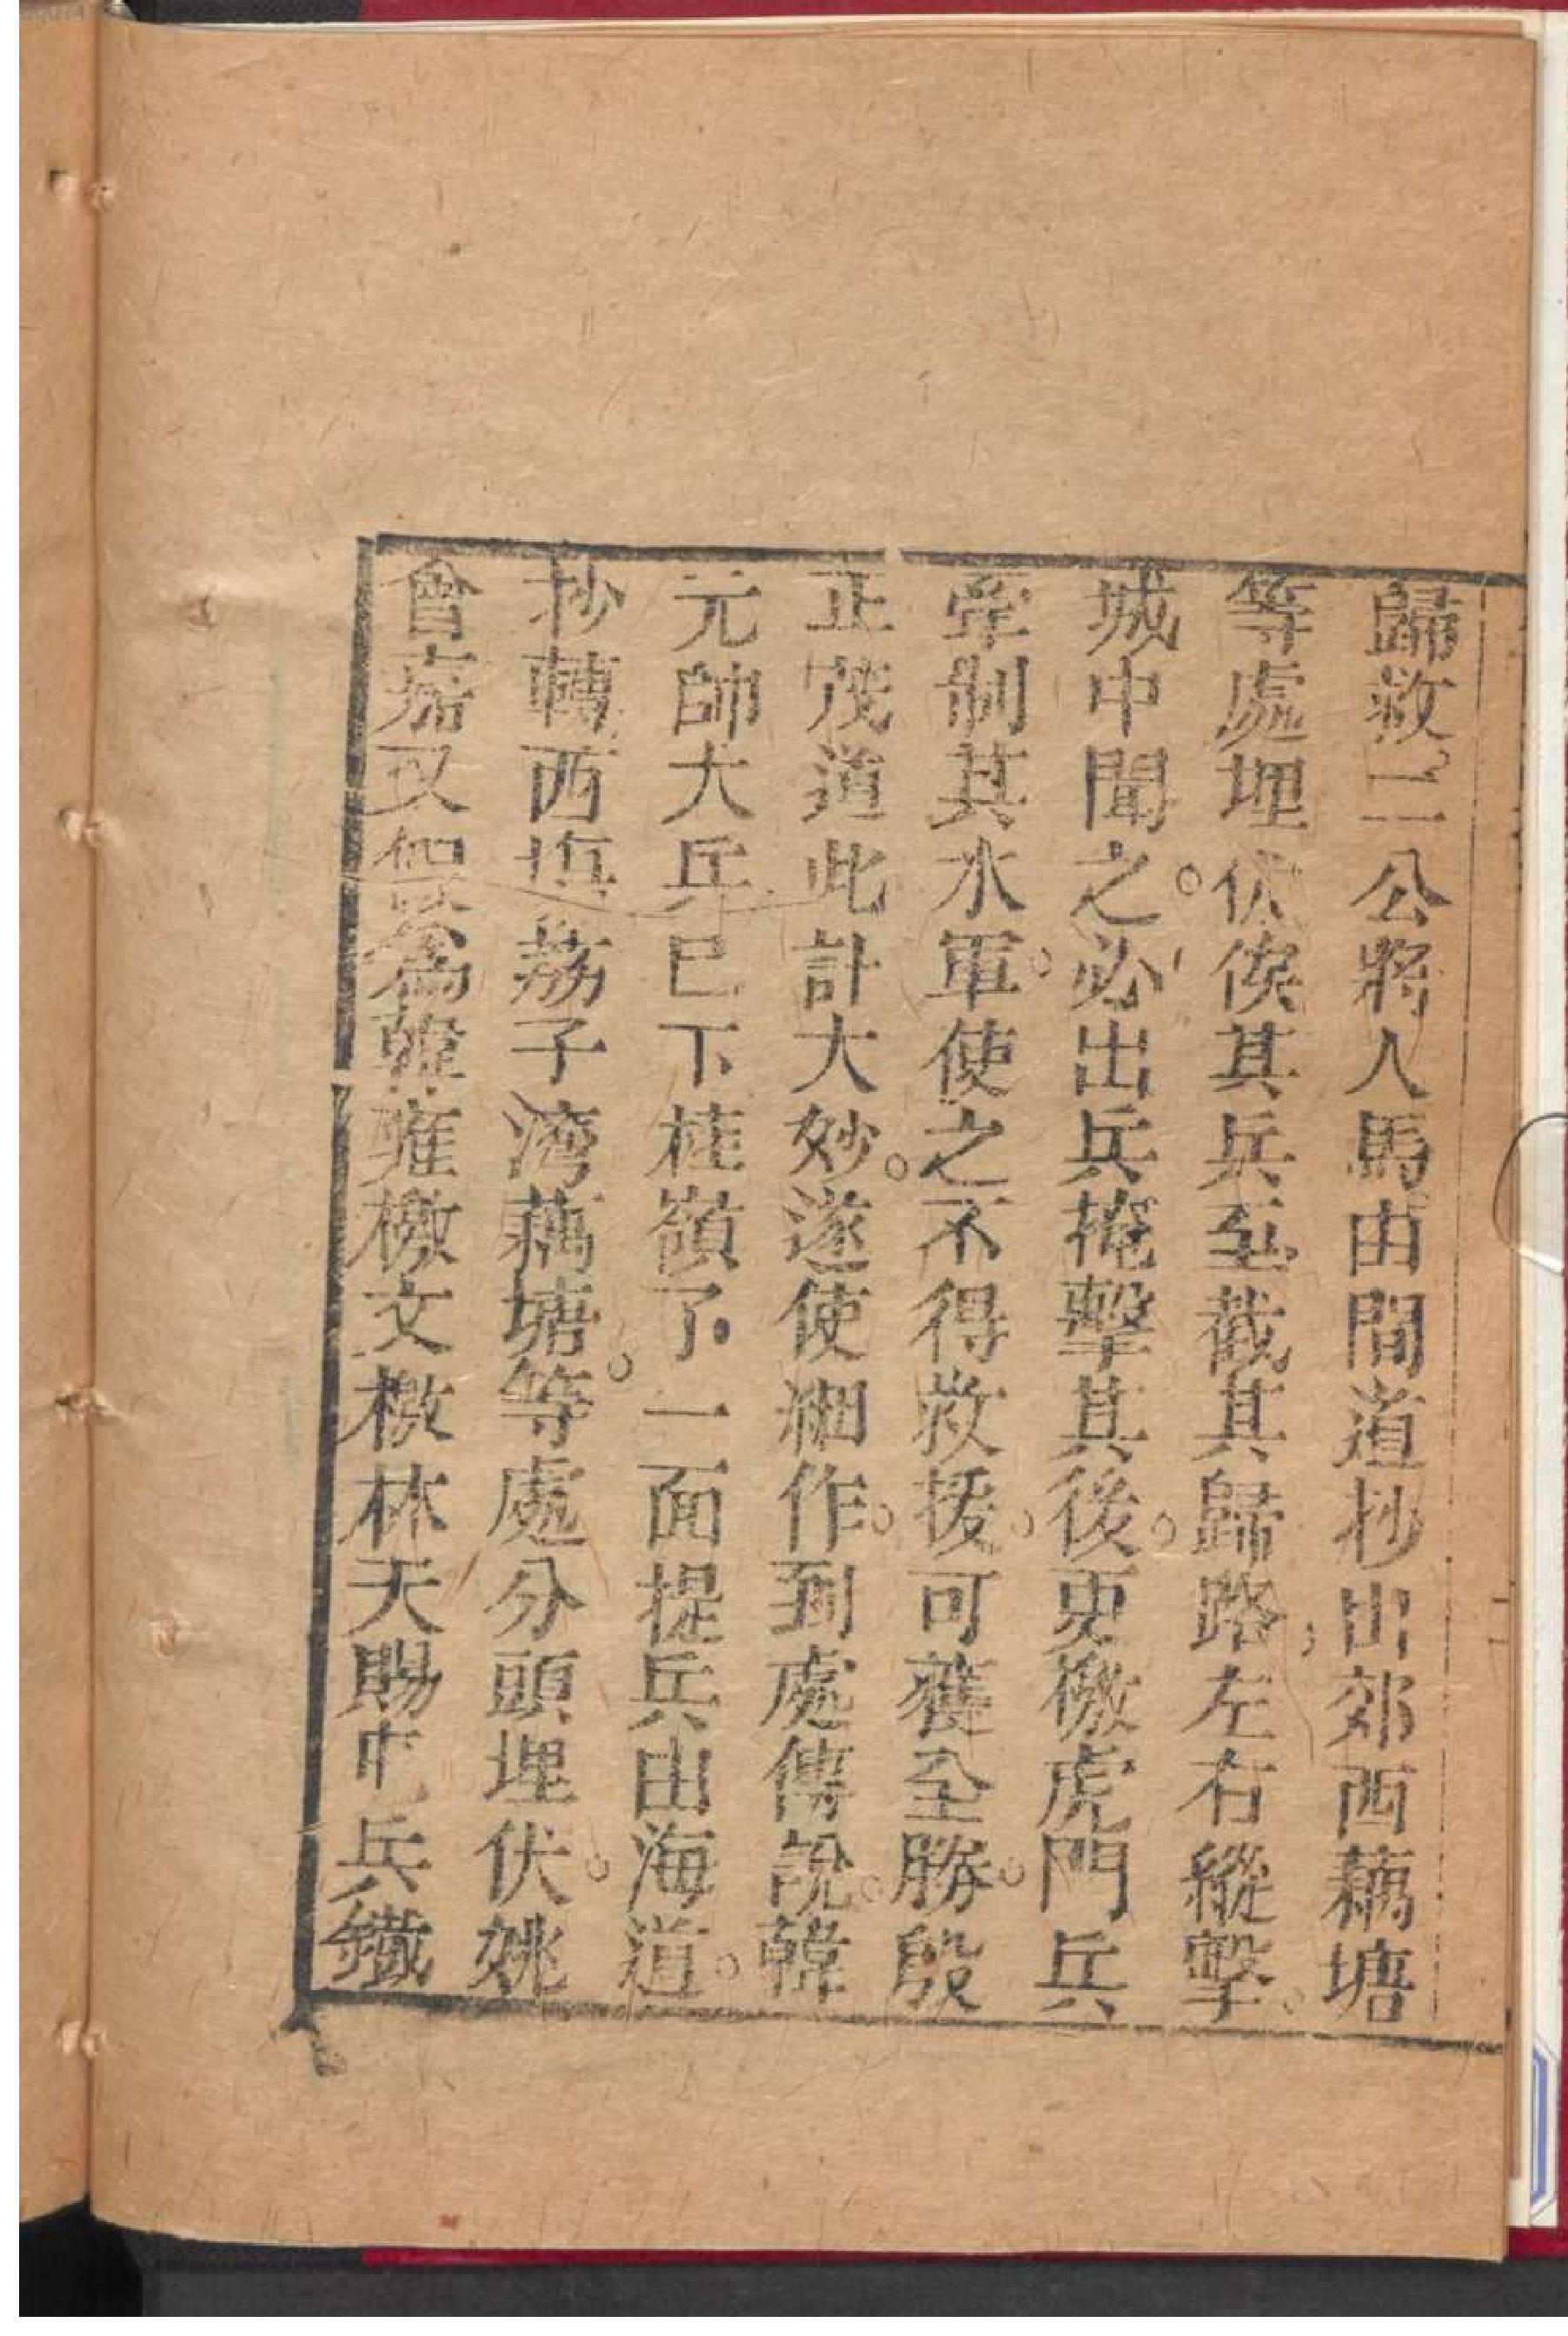 歸救二公將人馬由間道抄出郊西藕塘
等處埋伏俟其兵至截其歸路左右縱擊
城中聞之必出兵掩擊其後更檄虎門兵
牽制其水軍使之不得救援可獲全勝段
正茂道此計大妙遂使細作到處傳說韓
元帥大兵已下桂嶺了一面提兵由海道
抄轉西濱荔子湾藕塘等處分頭埋伏姚
會茄又假爲韓雍檄文檄林天賜屯兵鐵